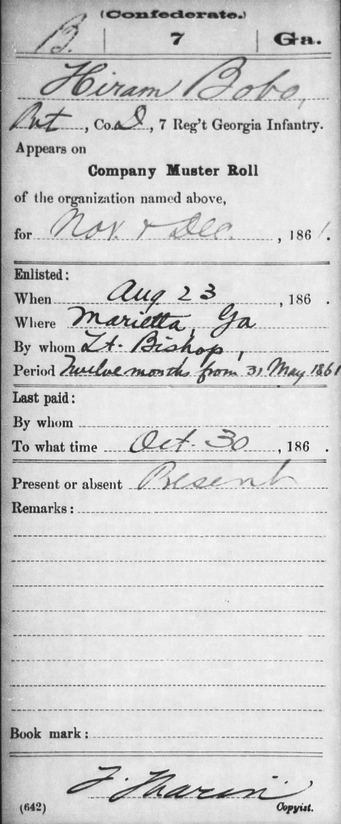 (Confederate.)
B. | 7 | Ga.
Hiram Bobo,
Pvt, Co. D, 7 Reg't Georgia Infantry.
Appears on
Company Muster Roll
of the organization named above,
for Nov. & Dec., 1861.
Enlisted:
When Aug 23, 186 .
Where Marietta, Ga
By whom Lt. Bishop,
Period Twelve months from 31 May 1861
Last paid:
By whom
To what time Oct. 30, 186 .
Present or absent Present
Remarks:
Book mark:
(642) Copyist.